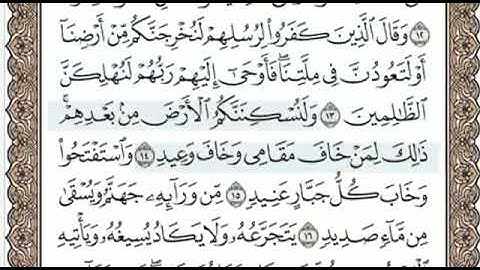 ١٢ وَقَالَ الَّذِينَ كَفَرُوا لِرُسُلِهِمْ لَنُخْرِجَنَّكُم مِّنْ أَرْضِنَا
أَوْ لَتَعُودُنَّ فِي مِلَّتِنَا ۖ فَأَوْحَىٰ إِلَيْهِمْ رَبُّهُمْ لَنُهْلِكَنَّ
الظَّالِمِينَ ١٣ وَلَنُسْكِنَنَّكُمُ الْأَرْضَ مِن بَعْدِهِمْ ۚ
ذَٰلِكَ لِمَنْ خَافَ مَقَامِي وَخَافَ وَعِيدِ ١٤ وَاسْتَفْتَحُوا
وَخَابَ كُلُّ جَبَّارٍ عَنِيدٍ ١٥ مِّن وَرَائِهِ جَهَنَّمُ وَيُسْقَىٰ
مِن مَّاءٍ صَدِيدٍ ١٦ يَتَجَرَّعُهُ وَلَا يَكَادُ يُسِيغُهُ وَيَأْتِيهِ